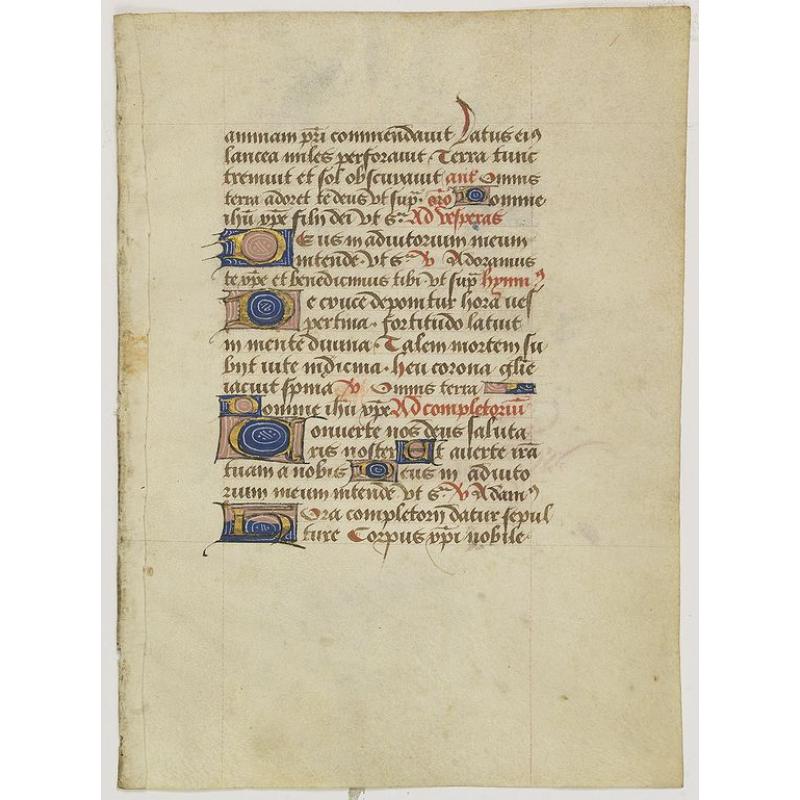 animam pri commendavit Latus ei⁹
lancea miles perforavit · Terra tunc
tremuit et sol obscuravit ant̄ Omnis
terra adoret te deus vt sup̄· orō Domine·
ihū xp̄e filii dei vt s̄· Ad vesperas
Deus in adiutorium meum
intende · vt s̄· V Adoramus
te xp̄e et benedicimus tibi vt sup̄ hymn⁹
De cruce deponitur hora ves
pertina · fortitudo latuit
in mente divina · Talem mortem su
biit vite medicina · heu corona glīe
iacuit spina V Omnis terra
Domine ihū xp̄e Ad completoriū
Converte nos deus saluta
ris noster Et averte irā
tuam a nobis Deus in adiuto
rium meum intende vt s̄· V Adam⁹
Hora completorij datur sepul
ture Corpus xp̄i nobile·